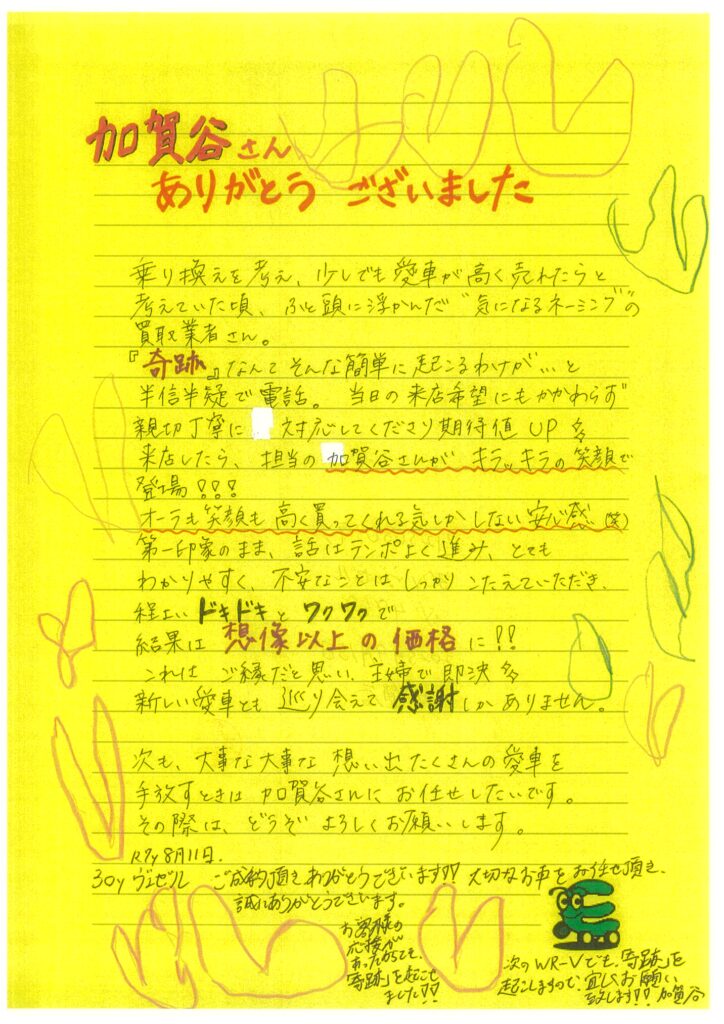 加賀谷さん
ありがとう ございました
乗り換えを考え、少しでも愛車が高く売れたらと
考えていた頃、ふと頭に浮かんだ"気になるネーミング"の
買取業者さん。
『奇跡』なんてそんな簡単に起こるわけが…と
半信半疑で電話。当日の来店希望にもかかわらず
親切丁寧に 対応してくださり期待値UP
来店したら、担当の加賀谷さんがキラッキラの笑顔で
登場!!!
オーラも笑顔も高く買ってくれる気しかしない安心感(笑)
第一印象のまま、話はテンポよく進み、とても
わかりやすく、不安なことはしっかりこたえていただき、
程よいドキドキとワクワクで
結果は想像以上の価格に!!
これはご縁だと思い、主婦で即決
新しい愛車とも巡り会えて感謝しかありません。
次も、大事な大事な想い出たくさんの愛車を
手放すときは加賀谷さんにお任せしたいです。
その際は、どうぞよろしくお願いします。
R7y 8月11日.
30y ヴェゼル ご成約頂きありがとうございます!! 大切なお車をお任せ頂き、
誠にありがとうございます。
お客様の
応援が
あったからこそ、
「奇跡」を起こせ
ました!!
次のWR-Vでも、「奇跡」を
起こしますので、宜しくお願い
致します!! 加賀谷